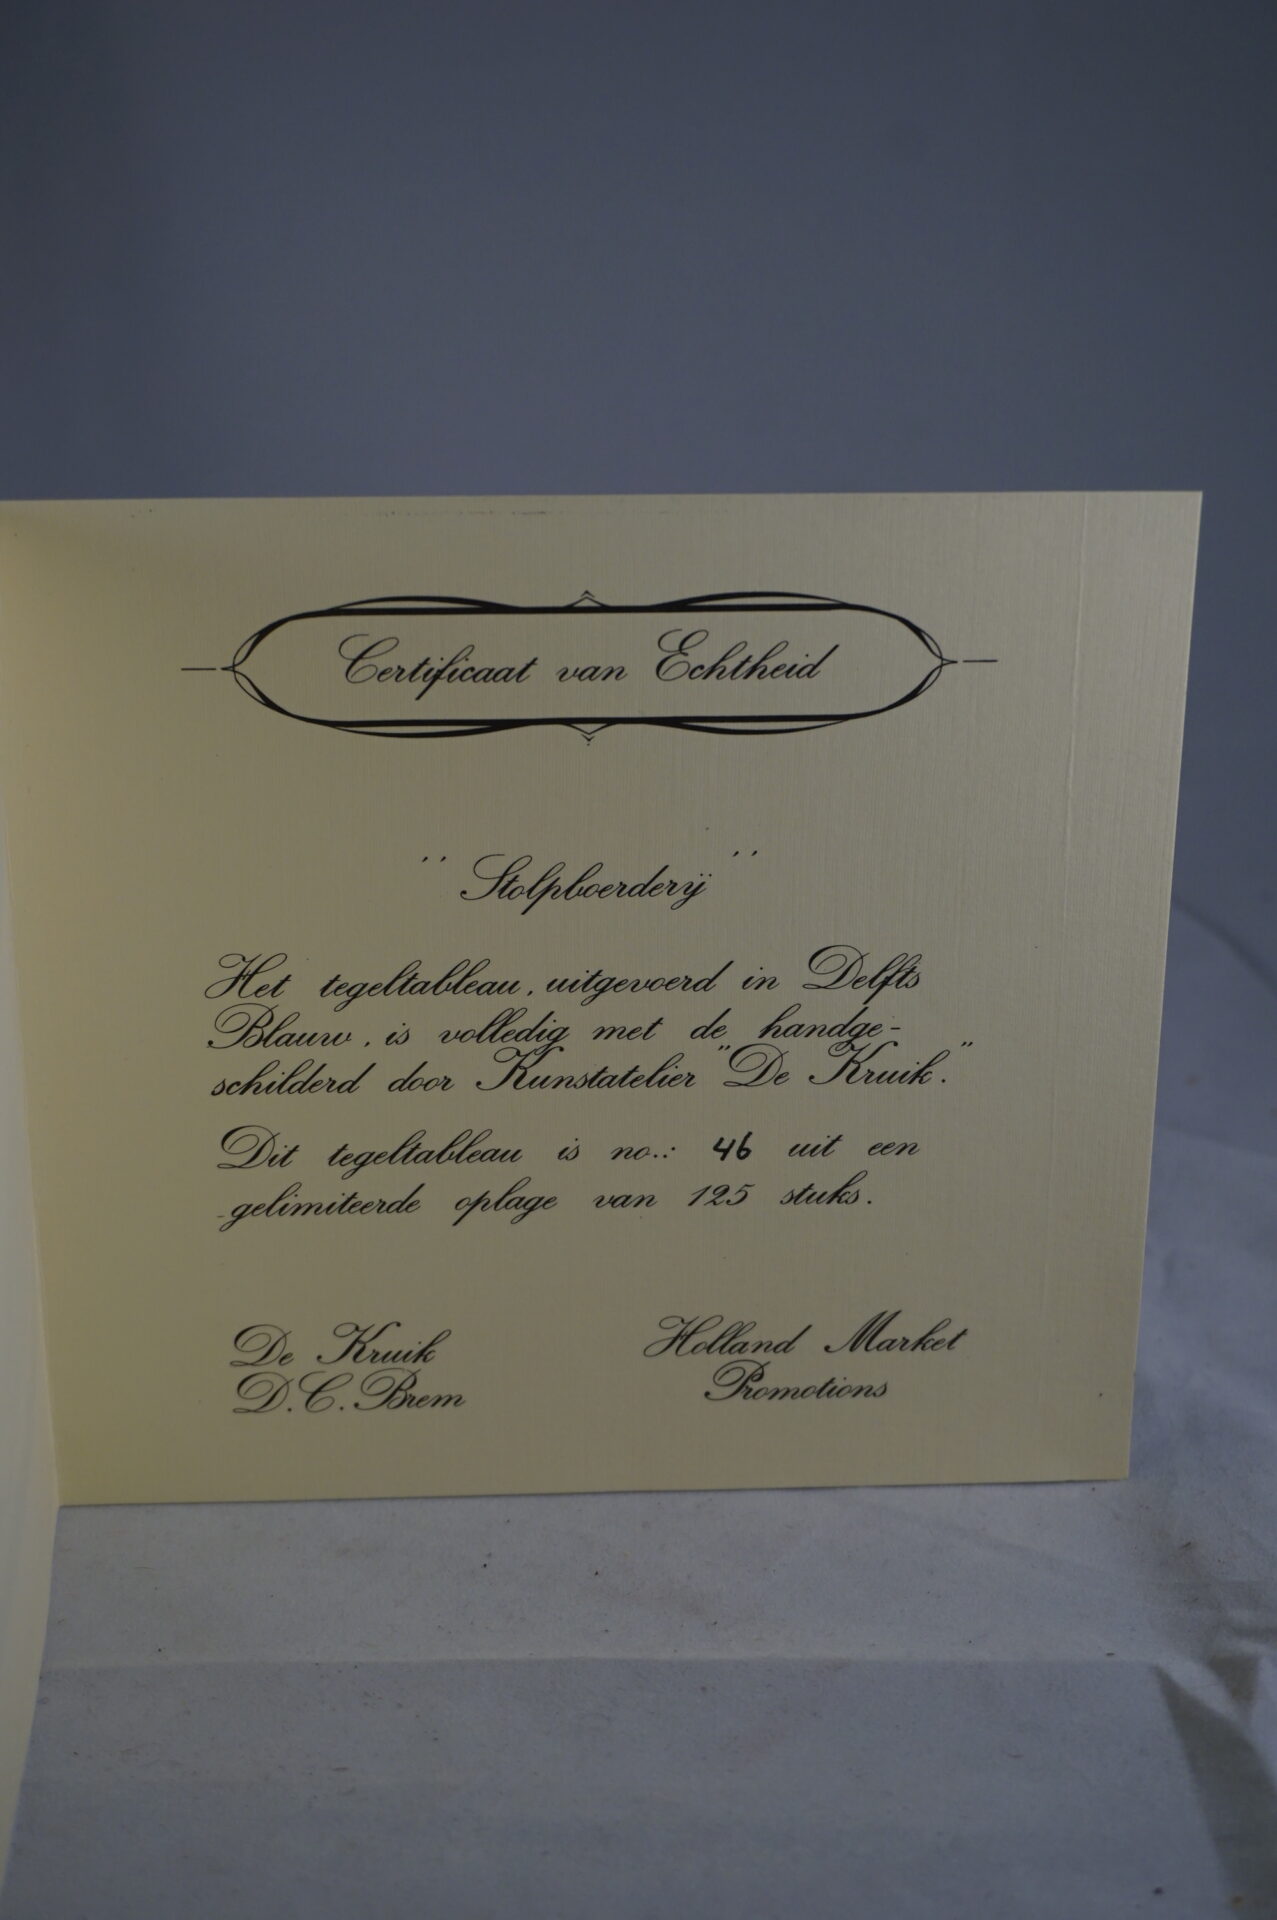 Certificaat van Echtheid
"Stolpboerderij"
Het tegeltableau, uitgevoerd in Delfts
Blauw, is volledig met de handge-
schilderd door Kunstatelier "De Kruik."
Dit tegeltableau is no.: 46 uit een
gelimiteerde oplage van 125 stuks.
De Kruik
D.C. Brem
Holland Market
Promotions